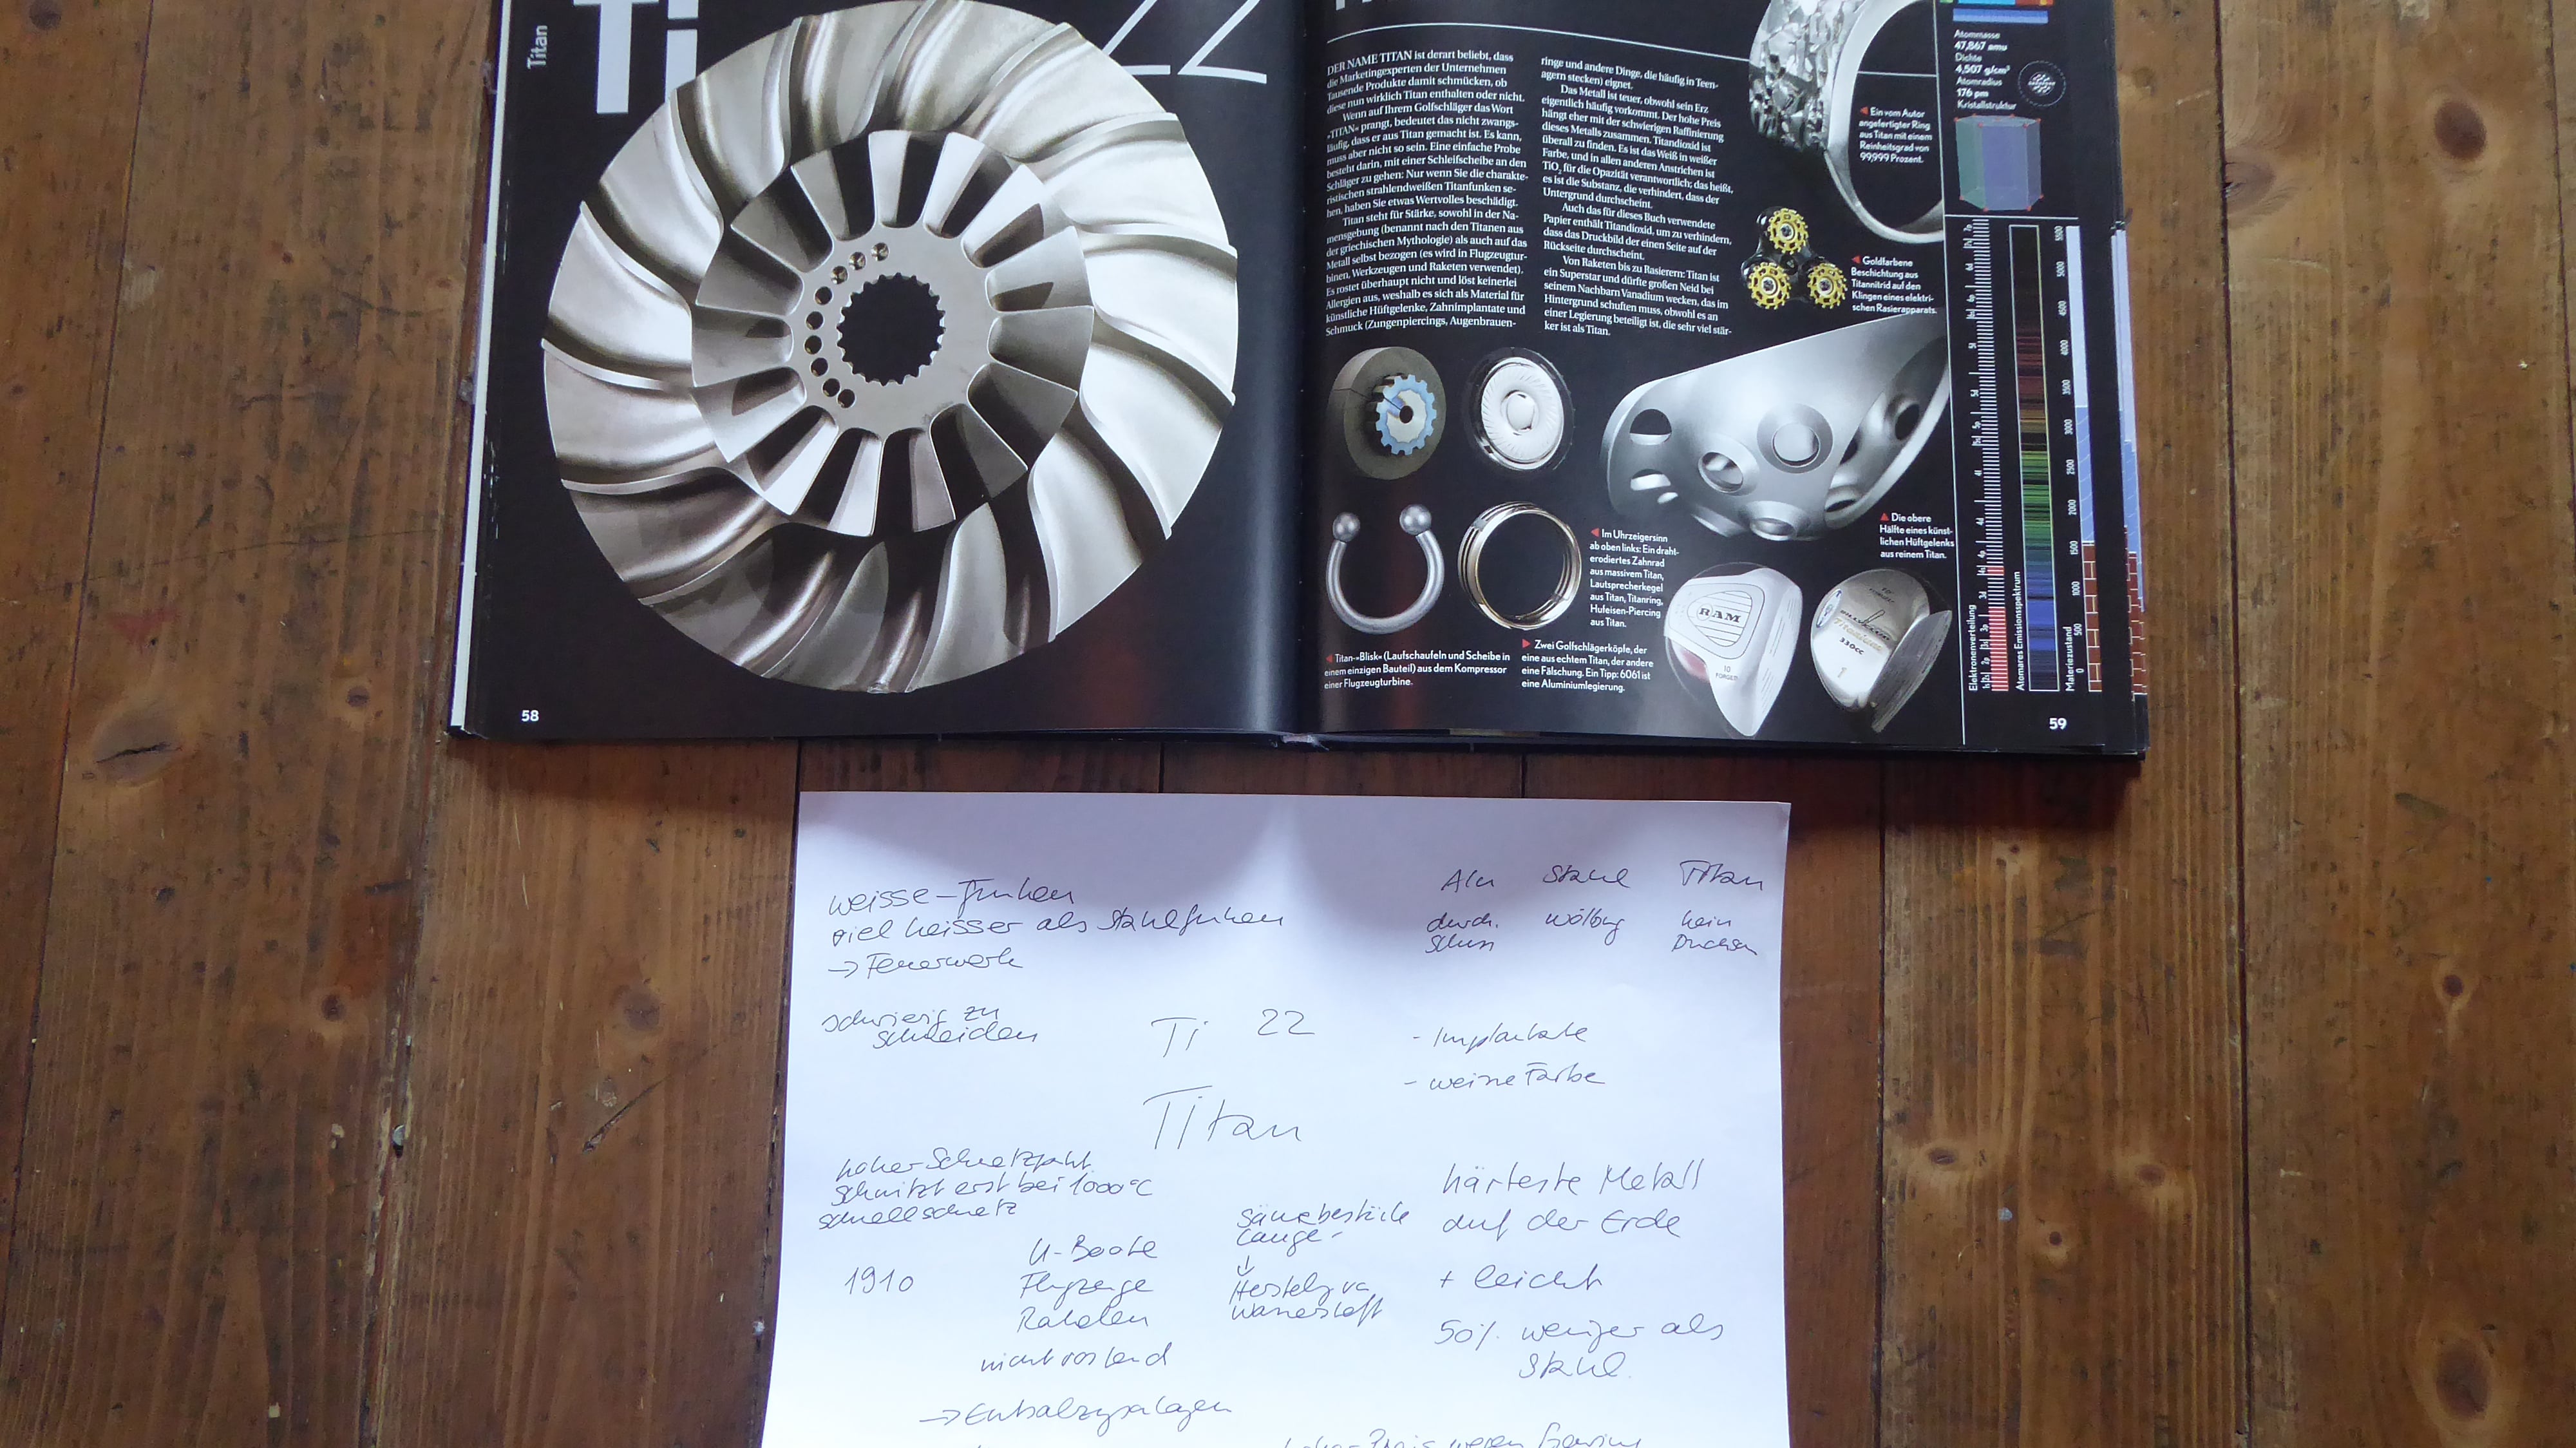 Titan
Ti
22
58
DER NAME TITAN ist derart beliebt, dass
die Marketingexperten der Unternehmen
Tausende Produkte damit schmücken, ob
diese nun wirklich Titan enthalten oder nicht.
Wenn auf Ihrem Golfschläger das Wort
»TITAN« prangt, bedeutet das nicht zwangs-
läufig, dass er aus Titan gemacht ist. Es kann,
muss aber nicht so sein. Eine einfache Probe
besteht darin, mit einer Schleifscheibe an den
Schläger zu gehen: Nur wenn Sie die charakte-
ristischen strahlendweißen Titanfunken se-
hen, haben Sie etwas Wertvolles beschädigt.
Titan steht für Stärke, sowohl in der Na-
mensgebung (benannt nach den Titanen aus
der griechischen Mythologie) als auch auf das
Metall selbst bezogen (es wird in Flugzeugtur-
binen, Werkzeugen und Raketen verwendet).
Es rostet überhaupt nicht und löst keinerlei
Allergien aus, weshalb es sich als Material für
künstliche Hüftgelenke, Zahnimplantate und
Schmuck (Zungenpiercings, Augenbrauen-
ringe und andere Dinge, die häufig in Teen-
agern stecken) eignet.
Das Metall ist teuer, obwohl sein Erz
eigentlich häufig vorkommt. Der hohe Preis
hängt eher mit der schwierigen Raffinierung
dieses Metalls zusammen. Titandioxid ist
überall zu finden. Es ist das Weiß in weißer
Farbe, und in allen anderen Anstrichen ist
TiO₂ für die Opazität verantwortlich; das heißt,
es ist die Substanz, die verhindert, dass der
Untergrund durchscheint.
Auch das für dieses Buch verwendete
Papier enthält Titandioxid, um zu verhindern,
dass das Druckbild der einen Seite auf der
Rückseite durchscheint.
Von Raketen bis zu Rasierern: Titan ist
ein Superstar und dürfte großen Neid bei
seinem Nachbarn Vanadium wecken, das im
Hintergrund schuften muss, obwohl es an
einer Legierung beteiligt ist, die sehr viel stär-
ker ist als Titan.
Ein vom Autor
angefertigter Ring
aus Titan mit einem
Reinheitsgrad von
99,999 Prozent.
Goldfarbene
Beschichtung aus
Titannitrid auf den
Klingen eines elektri-
schen Rasierapparats.
Die obere
Hälfte eines künst-
lichen Hüftgelenks
aus reinem Titan.
Im Uhrzeigersinn
ab oben links: Ein draht-
erodiertes Zahnrad
aus massivem Titan,
Lautsprecherkegel
aus Titan, Titanring,
Hufeisen-Piercing
aus Titan.
Titan-»Blisk« (Laufschaufeln und Scheibe in
einem einzigen Bauteil) aus dem Kompressor
einer Flugzeugturbine.
Zwei Golfschlägerköpfe, der
eine aus echtem Titan, der andere
eine Fälschung. Ein Tipp: 6061 ist
eine Aluminiumlegierung.
RAM
10
FORGED
Titanium
330cc
Atommasse
47,867 amu
Dichte
4,507 g/cm³
Atomradius
176 pm
Kristallstruktur
Elektronenverteilung
Atomares Emissionsspektrum
Materiezustand
0
500
1000
1500
2000
2500
3000
3500
4000
4500
5000
5500
59
weisse-Funken
viel heisser als Stahlfunken
→ Feuerwerk
Alu Stahl Titan
durch. wölbung kein
schuss
schwierig zu
schneiden
Ti 22
Titan
- Implantate
- weisse Farbe
hoher Schmelzpunkt
schmilzt erst bei 1000°C
1910
U-Boote
Flugzeuge
Raketen
nicht rostend
→ Entsalzungsanlagen
säurebeständig
Lauge-
↓
Herstellung von
Wasserstoff
härteste Metall
auf der Erde
+ leicht
50% weniger als
Stahl.